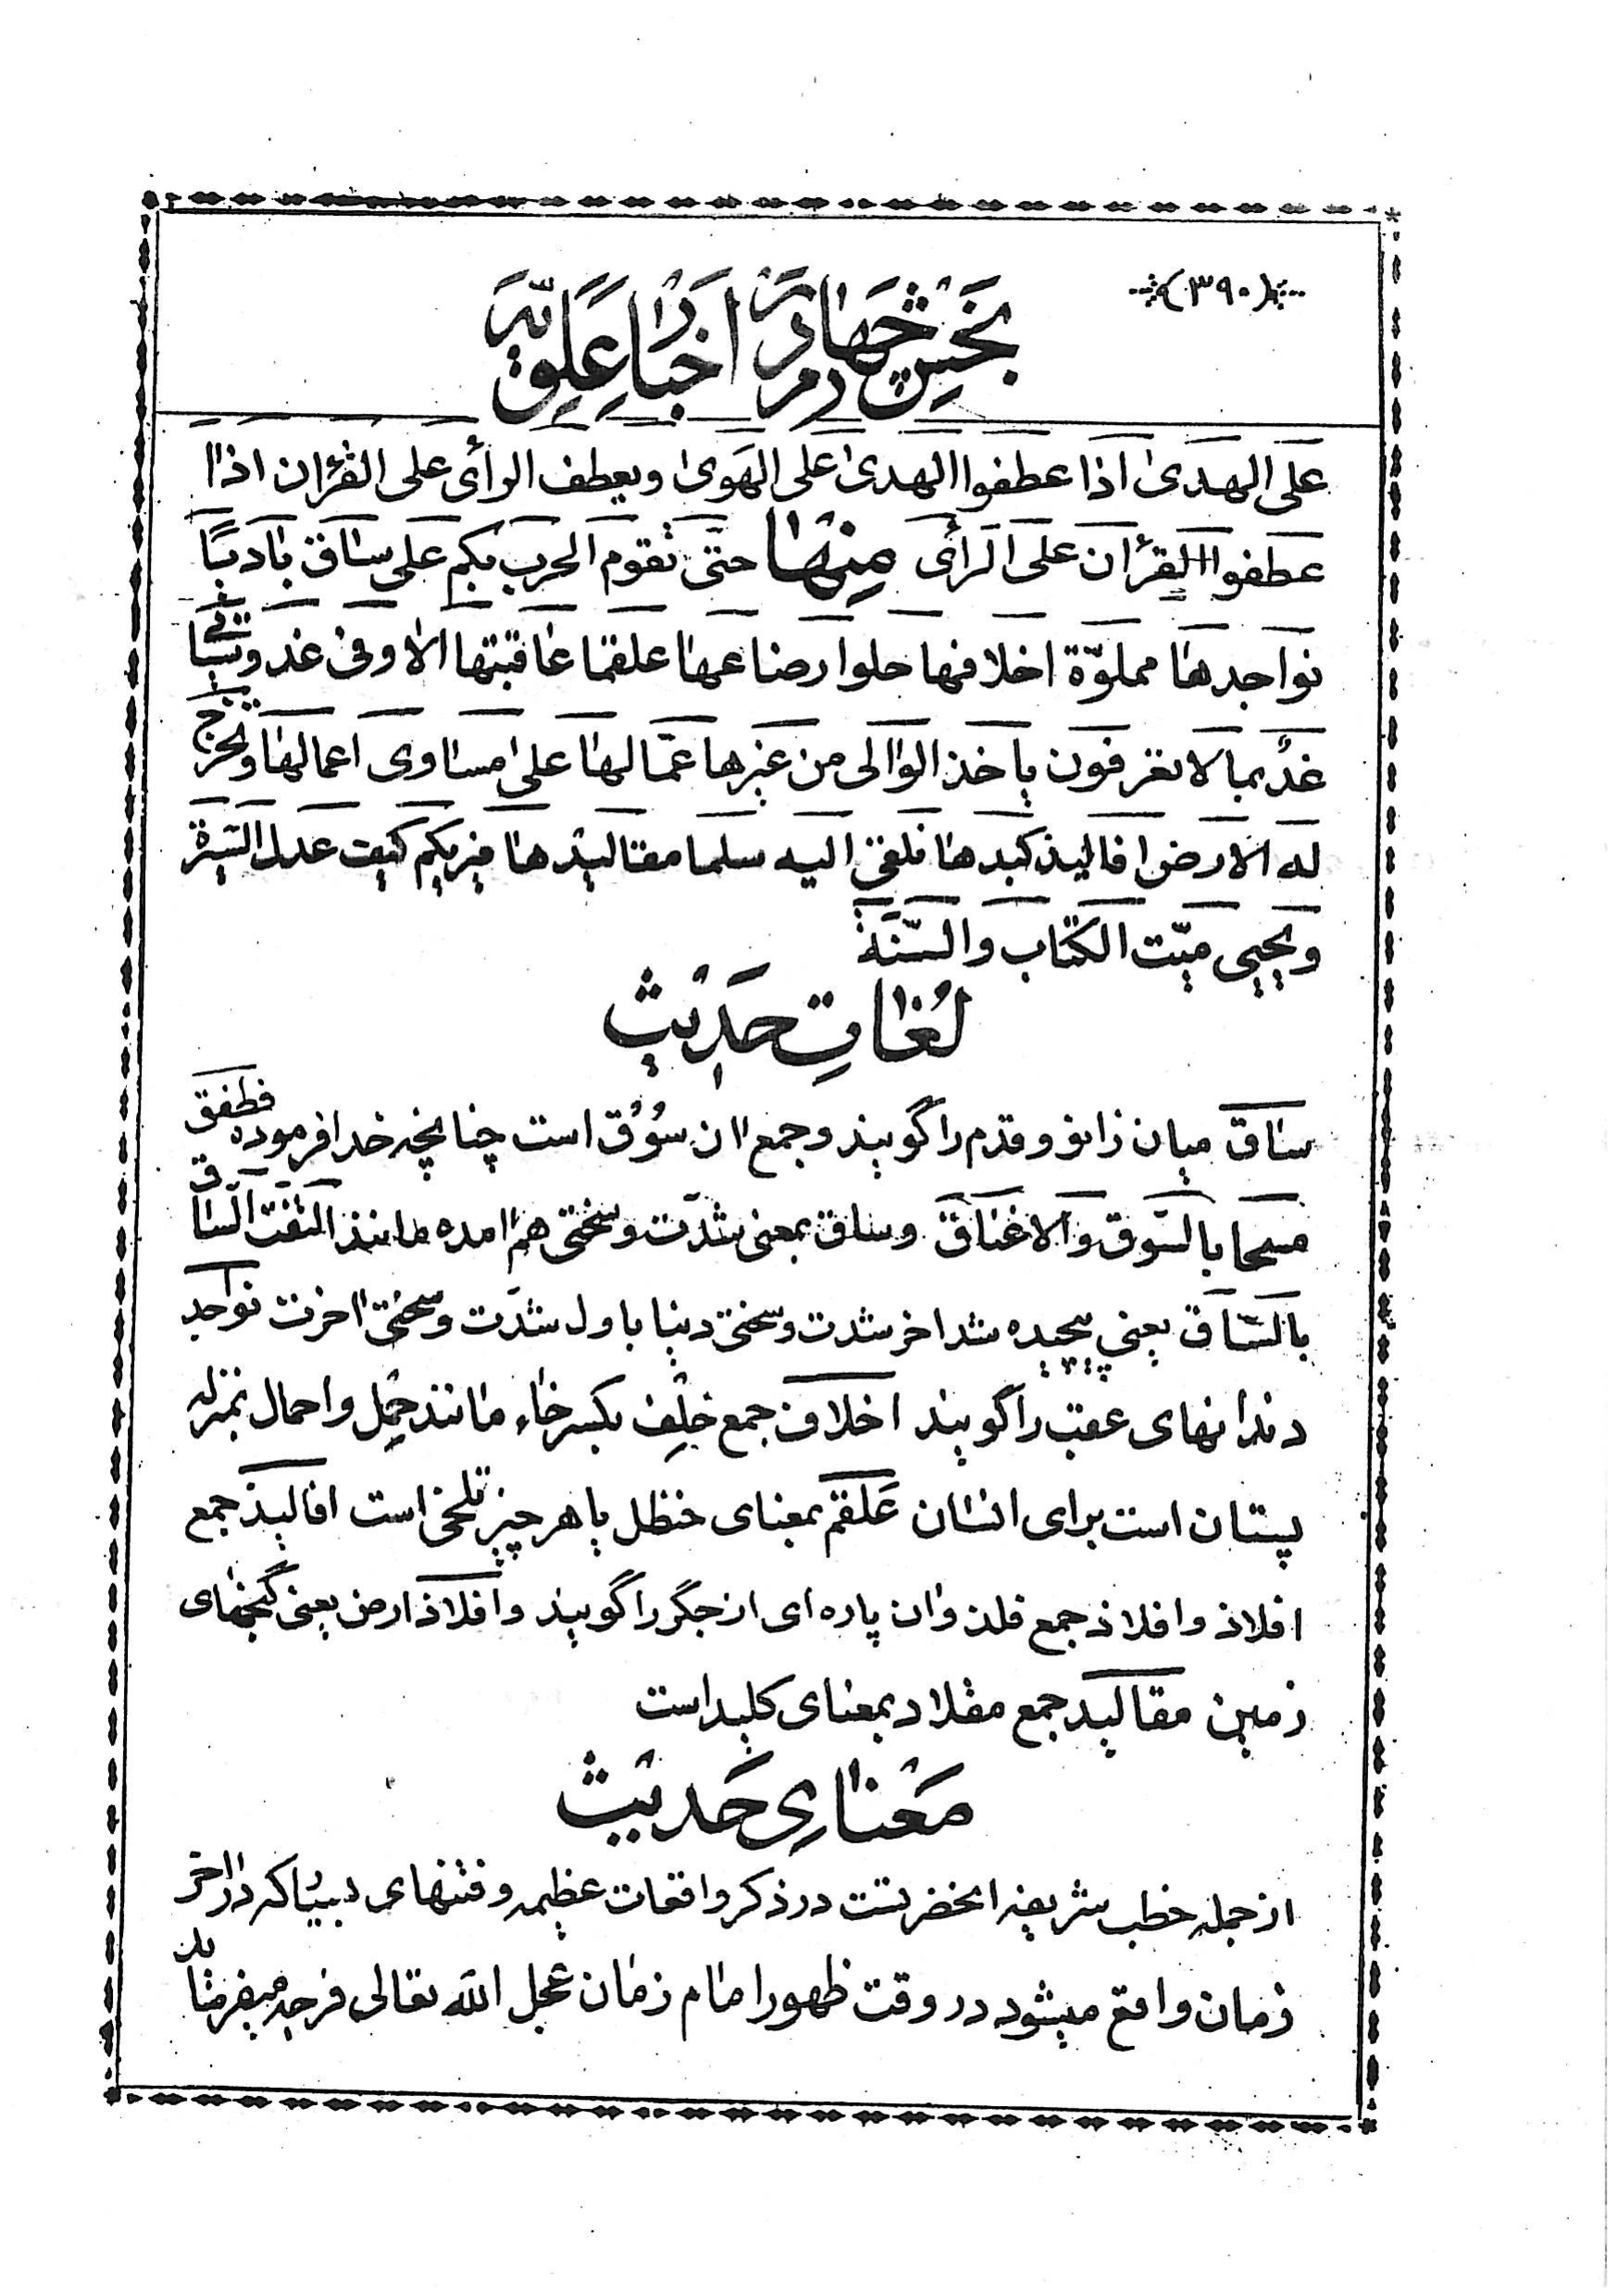 (۳۹۰)
بخش چهارم در اخبار علویّه
علی الهدی اذا عطفوا الهدی علی الهوی ویعطف الرأی علی القرٰان اذا
عطفوا القرٰان علی الرأی منها حتّی تقوم الحرب بکم علی ساق بادیًا
نواجدها مملوّة اخلافها حلوا رضاعها علقما عاقبتها الا وفی غد وسیأتی
غدٌ بما لا تعرفون یأخذ الوالی من غیرها عمّالها علی مساوی اعمالها وتخرج
له الارض افالیذ کبدها تلقی الیه سلما مقالیدها فیریکم کیف عدل السّیرة
ویحیی میّت الکتاب والسّنّة
لغات حدیث
ساق میان زانو و قدم را گویند و جمع ان سُوُق است چنانچه خدا فرموده فطفق
مسحا بالسّوق والاعناق وساق بمعنی شدّت و سختی هم امده مانند التفّت السّاق
بالسّاق یعنی پیچیده شد اخر شدت و سختی دنیا باول شدّت و سختی اخرت نواجد
دندانهای عقب را گویند اخلاف جمع خِلف بکسر خاء مانند حِمل و احمال بمنزله
پستان است برای انسان عَلقَم بمعنای حنظل یا هر چیز تلخی است افالیذ جمع
افلاذ و افلاذ جمع فلذ و ان پاره ای از جگر را گویند و افلاذ ارض یعنی گنجهای
زمین مقالید جمع مقلاد بمعنای کلید است
معنای حدیث
از جمله خطب شریفه انحضرتست در ذکر واقعات عظیمه و فتنهای دنیا که در اخر
زمان واقع میشود در وقت ظهور امام زمان عجل الله تعالی فرجه میفرماید